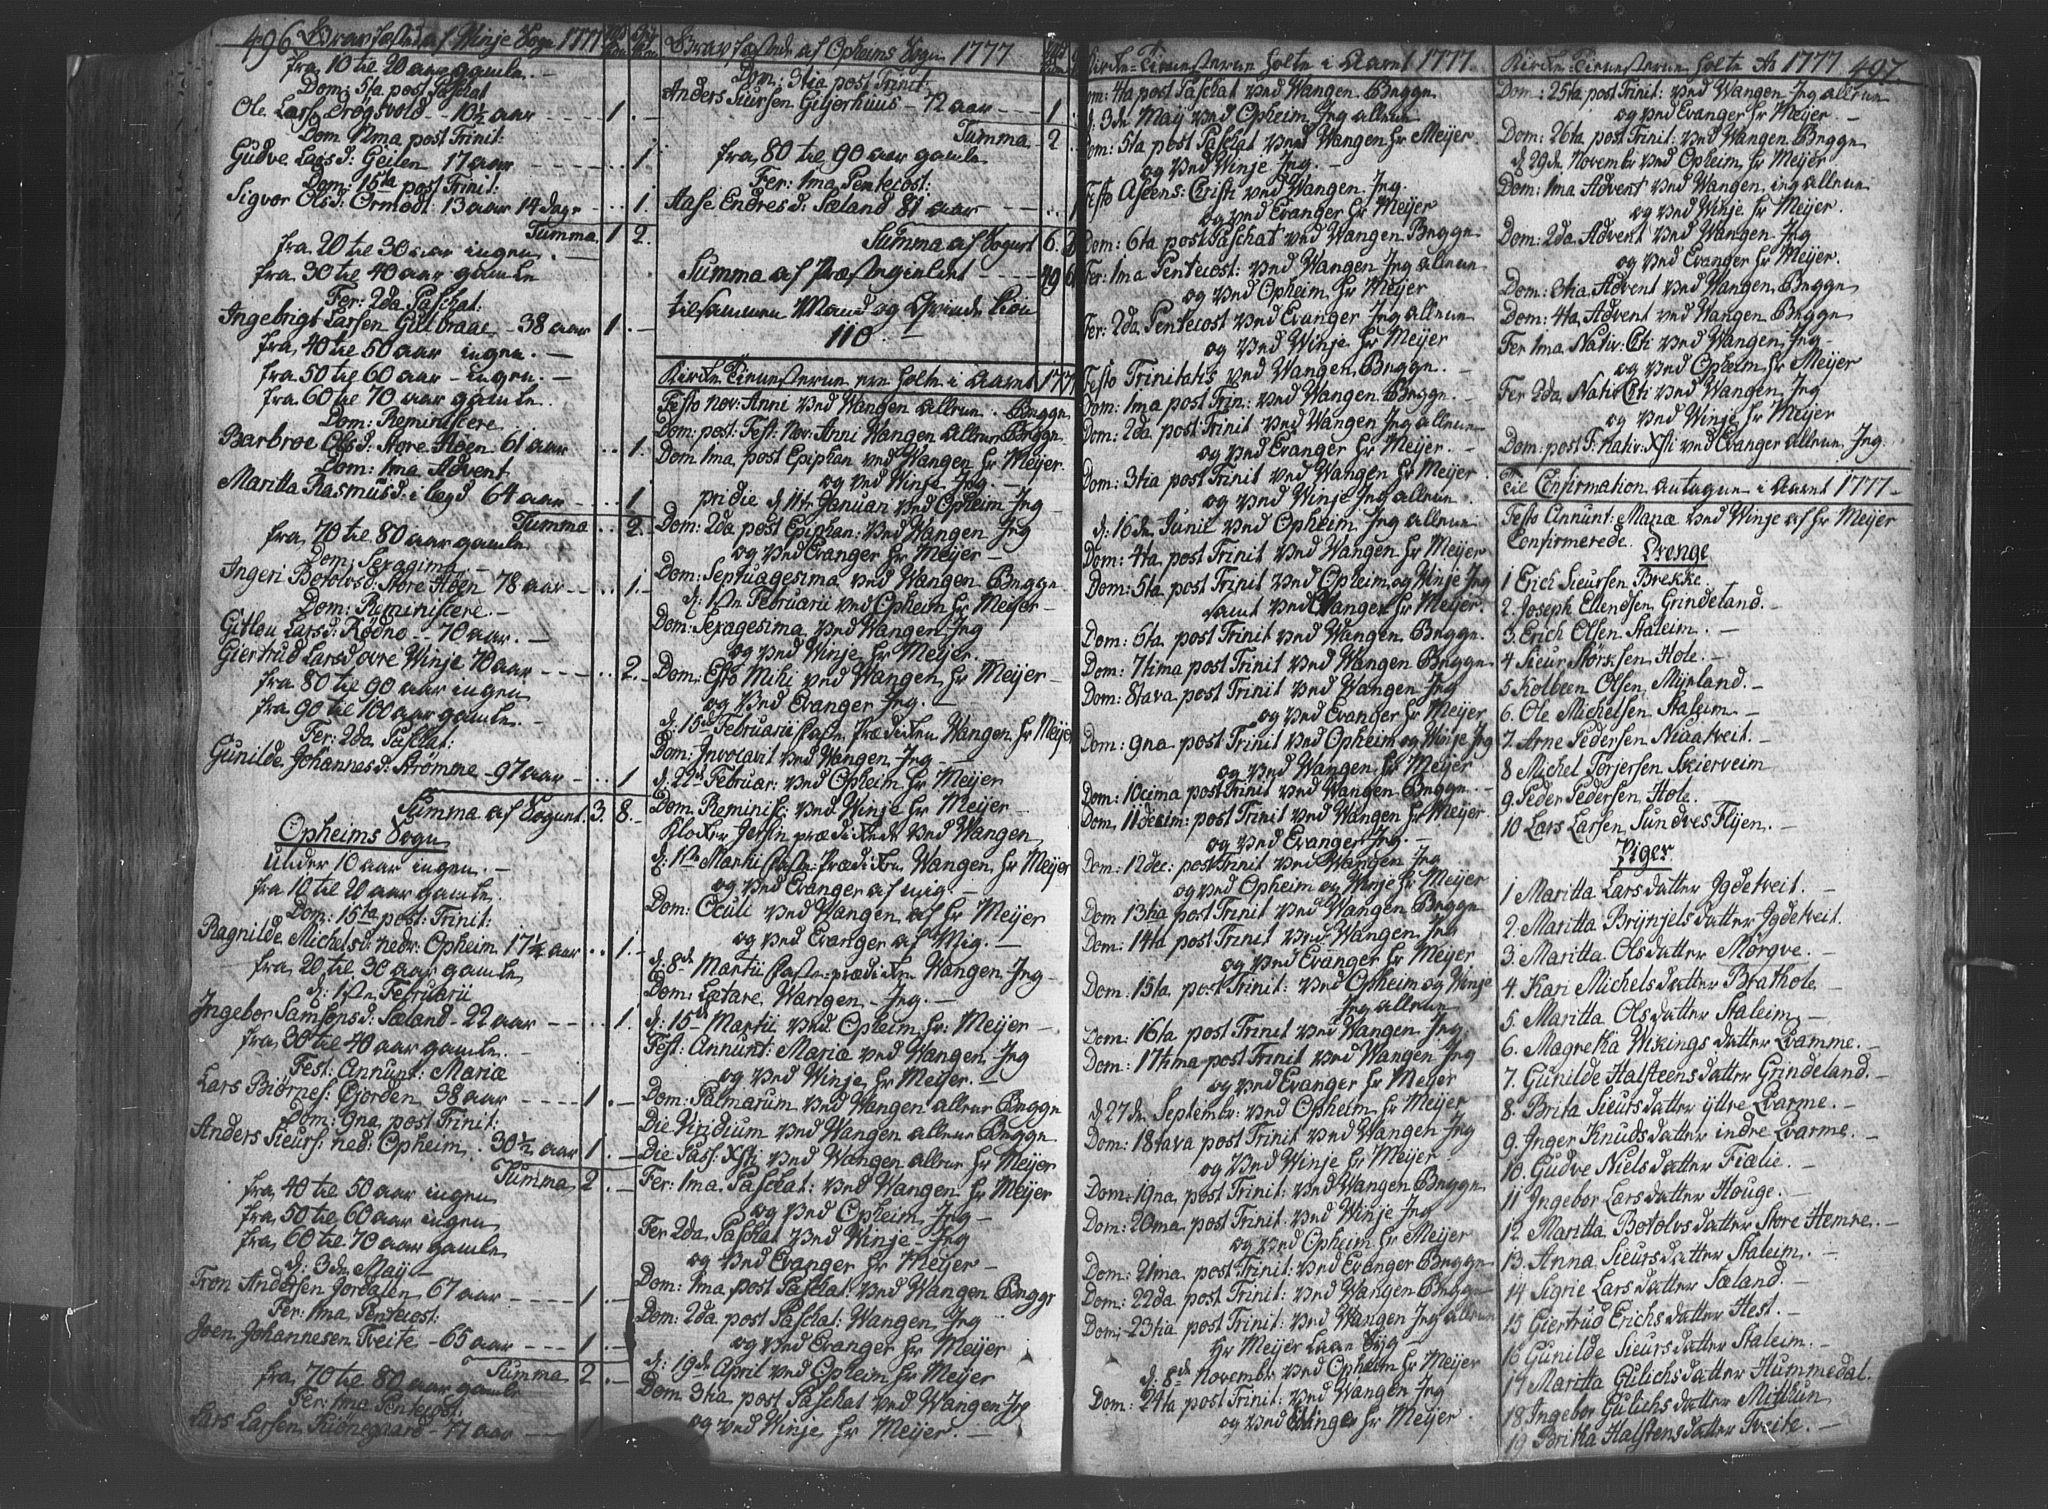 496 Gravfæstede af Winje Sogn 1777
fra 10 til 20 aar gamle. -
Dom: 5ta post Paschat
Ole Larss: Drögsvold - 10½ aar - - - 1. -
Dom IIma post Trinit:
Gudve Larsd: Geilen 17 aar - - - - 1.
Dom: 15ta post Trinit:
Sigvor Olsd: Ormodt. 13 aar 14 dage - - 1.
Summa 1 2.
fra 20 til 30 aar ingen. -
fra 30 til 40 aar gamle
Fer: 2da Paschat:
Ingebrigt Larsen Gulbraae - 38 aar 1. -
fra 40 til 50 aar ingen. -
fra 50 til 60 aar - ingen. -
fra 60 til 70 aar gamle.
Dom: Reminiscere.
Barbroe Olsd: Store Aben 61 aar . . . 1.
Dom: 1ma Advent
Maritta Rasmusd: i legd 64 aar - - - 1
Summa . . 2. -
fra 70 til 80 aar gamle
Dom: Sexagima. -
Ingeri Botolvsd: Store Aben 78 aar - - . 1. -
Dom: Reminiscere. -
Gitlou Larsd: Rödno - - 70 aar. -
Giertrud Larsd ovre Winje 70 aar - - - - . 2. -
fra 80 til 90 aar ingen
fra 90 til 100 aar gamle. -
Fer: 2da Paschat:
Gunilde Johannesd: Strömme - 97 aar - . . . 1
Summa af Sognet 3. 8. -
Opheims Sogn
under 10 aar ingen. -
fra 10 til 20 aar gamle.
Dom: 15ta post: Trinit:
Ragnilde Michelsd: nedr: Opheim 17¼ aar . . 1. -
fra 20 til 30 aar gamle
d: 1ste Februarii
Ingebor Samsonsd: Sæland - 22 aar - - - . . 1.
fra 30 til 40 aar gamle. -
Fest: Annunt: Mariæ
Lars Biörnes: Gjorden 38 aar - - - - 1 . -
Dom: 9na post Trinit:
Anders Sieurs: ned: Opheim . 30½ aar 1 . -
Summa 2 . -
fra 40 til 50 aar ingen
fra 50 til 60 aar ingen
fra 60 til 70 aar gamle
d: 3de May -
Tron Andersen Jordalen 67 aar - - - - 1 . -
Fer: 1ma Pentecost:
Joen Johannesen Tveite - 65 aar - - - - 1 . -
Summa 2 . -
fra 70 til 80 aar gamle
Fer: 1ma Pentecost:
Lars Larsen Kiönegaard - 77 aar - - - 1
Gravfæstede af Opheims Sogn 1777
Dom: 3tia post Trinit:
Anders Siursen Giljerhuus - 72 aar - - - 1.
Summa 2 .
fra 80 til 90 aar gamle
Fer: 1ma Pentecost:
Aase Endresd: Sæland 81 aar - - . . 1
Summa af Sognet 6. 3
Summa af Præstegieldet - - - 49 6
tilsammen Mand og Qvinde Kiön
110. -
Kirke Tienesterne ere holte i Aaret 1777
Festo Nov: Anni ved Wangen allene - Begge
Dom: post: Fest: Nov: Anni Wangen allene Begge -
Dom 1ma post Epiphan ved Wangen Hr Meijer.
og ved Winje Jeg -
pridie d 11te Januar ved Opheim Jeg -
Dom: 2da post Epiphan: ved Wangen Jeg
og ved Evanger Hr Meijer -
Dom: Septuagesima ved Wangen Begge
d: 1ste Februarii ved Opheim Hr Meijer -
Dom: Sexagesima ved Wangen Jeg
og ved Winje Hr Meijer.
Dom: Esto Mihi ved Wangen Hr Meijer -
og ved Evanger Jeg. -
d: 15de Februarii faste Prædiken Wangen Hr Meijer
Dom: Invocavit ved Wangen Jeg. -
d: 22de Februar: ved Opheim Hr Meijer
Dom. Reminisc: ved Winje Hr Meijer -
Klokker Jersin prædikede ved Wangen
d: 1ste Martii faste: Prædiken Wangen Hr Meijer
og ved Evanger af mig -
Dom: Oculi ved Wangen af Hr Meijer
og ved Evanger af Mig. -
d: 8de Martii faste: prædiken Wangen Jeg -
Dom: Lætare Wangen - Jeg. -
d: 15de Martii ved Opheim Hr: Meijer -
Fest: Annunt: Mariæ ved Wangen Jeg
og ved Winje Hr Meijer. -
Dom: Palmarum ved Wangen allene Begge
Die Viridium ved Wangen allene Begge
Die Pass: Xsti ved Wangen allene Hr Meijer
Fer: 1ma Paschat: ved Wangen Hr Meijer
og ved Opheim Jeg -
Fer 2da Paschat ved Winje - Jeg
og ved Evanger Hr Meijer -
Dom: 1ma post Paschat: ved Wangen Begge
Dom: 2da post Paschat: Wangen Jeg
og ved Evanger Hr Meijer
d: 19de April ved Opheim Hr Meijer
Dom 3tia post Paschat ved Wangen Jeg
og ved Winje Hr Meijer. -
Kirke-Tienesterne holte i Aaret 1777.
Dom: 4ta post Paschat ved Wangen Begge
d. 3de May ved Opheim Jeg allene
Dom: 5ta post Paschat ved Wangen Hr Meijer
og ved Winje Jeg. -
Festo Ascens: Christi ved Wangen Jeg.
og ved Evanger Hr Meijer
Dom: 6ta post Paschat ved Wangen Begge
Fer: 1ma Pentecost: ved Wangen Jeg allene
og ved Opheim Hr Meijer
Fer: 2da Pentecost ved Evanger Jeg allene
og ved Winje Hr Meijer
Festo Trinitatis ved Wangen Begge. -
Dom: 1ma post Trin: ved Wangen Begge. -
Dom: 2da post Trinit ved Wangen Jeg allene
og ved Evanger Hr Meijer. -
Dom: 3tia post Trinit ved Wangen Hr Meijer
og ved Winje Jeg allene.
d: 16de Junii ved Opheim Jeg allene
Dom: 4ta post Trinit ved Wangen Hr Meijer
Dom: 5ta post Trinit ved Opheim og Winje Jeg
samt ved Evanger Hr Meijer.
Dom: 6ta post Trinit ved Wangen Begge.
Dom: 7tima post Trinit ved Wangen Begge
Dom: 8tava post Trinit ved Wangen Jeg
og ved Evanger Hr Meijer
Dom: 9na post Trinit ved Opheim og Winje Jeg
og ved Wangen Hr Meijer
Dom: 10cima post Trinit ved Wangen Begge. -
Dom 11decim: post Trinit ved Wangen Hr Meijer
og ved Evanger Jeg. -
Dom: 12dec: post Trinit ved Wangen Jeg
og ved Opheim og Winje Hr Meijer
Dom 13tia post Trinit ved Wangen Begge
Dom: 14ta post Trinit: ved Wangen Jeg
og ved Evanger Hr Meijer
Dom: 15ta post Trinit: ved Opheim og Winje
Jeg allene
Dom: 16ta post Trinit ved Wangen Jeg.
Dom: 17tima post Trinit ved Wangen Jeg
og ved Evanger Hr Meijer
d 27de Septembr: ved Opheim Hr Meijer
Dom: 18tava post Trinit ved Wangen Jeg
og ved Winje Hr Meijer
Dom: 19na post Trinit: ved Wangen Begge
Dom: 20ma post Trinit: ved Winje Jeg
og ved Opheim Hr Meijer
Dom: 21ma post Trinit: ved Evanger Begge
Dom: 22da post Trinit: ved Wangen Begge
Dom: 23tia post Trinit: ved Wangen Jeg allene
Hr Meijer Laae Syg
d: 8de Novembr ved Opheim Hr Meijer
Dom: 24ta post Trinit: ved Wangen Jeg
og ved Evanger Hr Meijer.
Kirke-Tienesterne holte Ao 1777 497
Dom: 25ta post Trinit: ved Wangen Jeg allene
og ved Evanger Hr Meijer. -
Dom: 26ta post Trinit: ved Wangen Begge
d 29de Novembr ved Opheim Hr Meijer
Dom: 1ma Advent ved Wangen jeg allene
og ved Winje Hr Meijer.
Dom: 2da Advent ved Wangen Jeg
og ved Evanger Hr Meijer.
Dom: 3tia Advent ved Wangen Begge
Dom: 4ta Advent ved Wangen Begge
Fer 1ma Nativ: Cti ved Wangen Jeg -
og ved Opheim Hr Meijer
Fer 2da Nativ Cti ved Wangen Jeg
og ved Winje Hr Meijer
Dom: post F: Nativ: Xsti ved Evanger allene Jeg.
Til Confirmation antagne i Aaret 1777 -
Festo Annunt: Mariæ ved Winje af Hr Meijer
Confirmerede.
Drenge
1 Erich Sieursen Brekke.
2. Joseph Ellendsen Grindeland. -
3. Erich Olsen Staleim. -
4 Sieur Störksen Hole. -
5 Kolbeen Olsen Myrland. -
6. Ole Michelsen Staleim -
7. Arne Pedersen Niaatveit. -
8 Michel Torjersen Skierveim
9. Peder Pedersen Hole.
10 Lars Larsen Sundves Flijen. -
Piger
1 Maritta Larsdatter Jgdetveit. -
2. Maritta Brynjelsdatter Jgdetveit.
3. Maritta Olsdatter Morgve. -
4. Kari Michelsdatter Brathole -
5. Maritta Olsdatter Staleim. -
6. Magretha Vikingsdatter Qvamme. -
7. Gunilde Halsteensdatter Grindeland. -
8. Brita Sieursdatter yttre Qvarme. -
9. Inger Knudsdatter indre Qvarme. -
10. Gudve Nielsdatter Fialie. -
11 Ingebor Larsdatter Houge. -
12 Maritta Botolvsdatter Store Hemre. -
13. Anna Sieursdatter Staleim. -
14 Sigrie Larsdatter Sæland. -
15 Giertrud Erichsdatter Hest. -
16 Gunilde Sieursdatter Staleim. -
17 Maritta Gulichsdatter Hummedal.
18 Ingebor Gulichsdatter Mitthun
19 Britha Halstensdatter Tveite. -